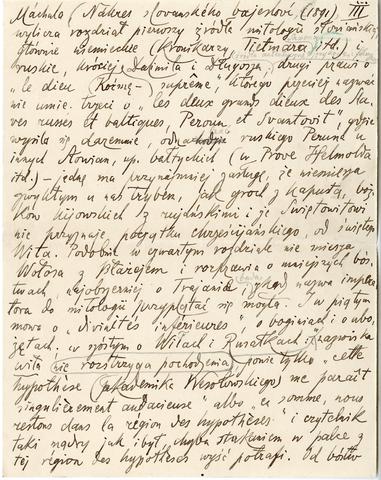 Máchala (Nákres slovanského bájesloví, (1891) III
wylicza rozdział pierwszy źródła mitologii słowiańskiej
głównie niemieckie (kronikarzy Tietmara itd.) i
ruskie, krócej Dalimila i Długosza; drugi prawi o
"le dieu suprême, którego prędzej nazwać
nie umie. trzeci o "les deux grands dieux des Sla-
ves russes et baltiques, Peroun et Svantovit" gdzie
wysila się daremnie, od ruskiego Peruna u
innych Słowian, np. bałtyckich (w Prove Helmolda
itd.) – jedną ma przynajmniej zasługę, że nie miesza
zwykłym u nas trybem, jak groch z kapustą, boż-
ków kijowskich z rujańskimi i że Świętowitowi
nie przyznaje początku chrześcijańskiego, od świętego
Wita. Podobnie w czwartym rozdziale nie miesza
Wołosa z Błażejem i rozprawia o mniejszych bós-
twach, najobszerniej o Trajanie, skąd nazwa impera-
tora do mitologii przyplątać się mogła. W piątym
mowa o "divinités inférieures", o boginiach i ubo-
żętach. w szóstym o Wilach i Rusałkach;
wila nie rozstrzyga pochodzenia, powie tylko "cette
hypothèse (akademika Wesołowskiego) me paraît
singulièrement audacieuse" albo "en somme, nous
restons dans la région des hypothèses" i czytelnik
taki mądry jak i był, chyba w palce z
tej région des hypothèses wyjść potrafi. Od bóstw